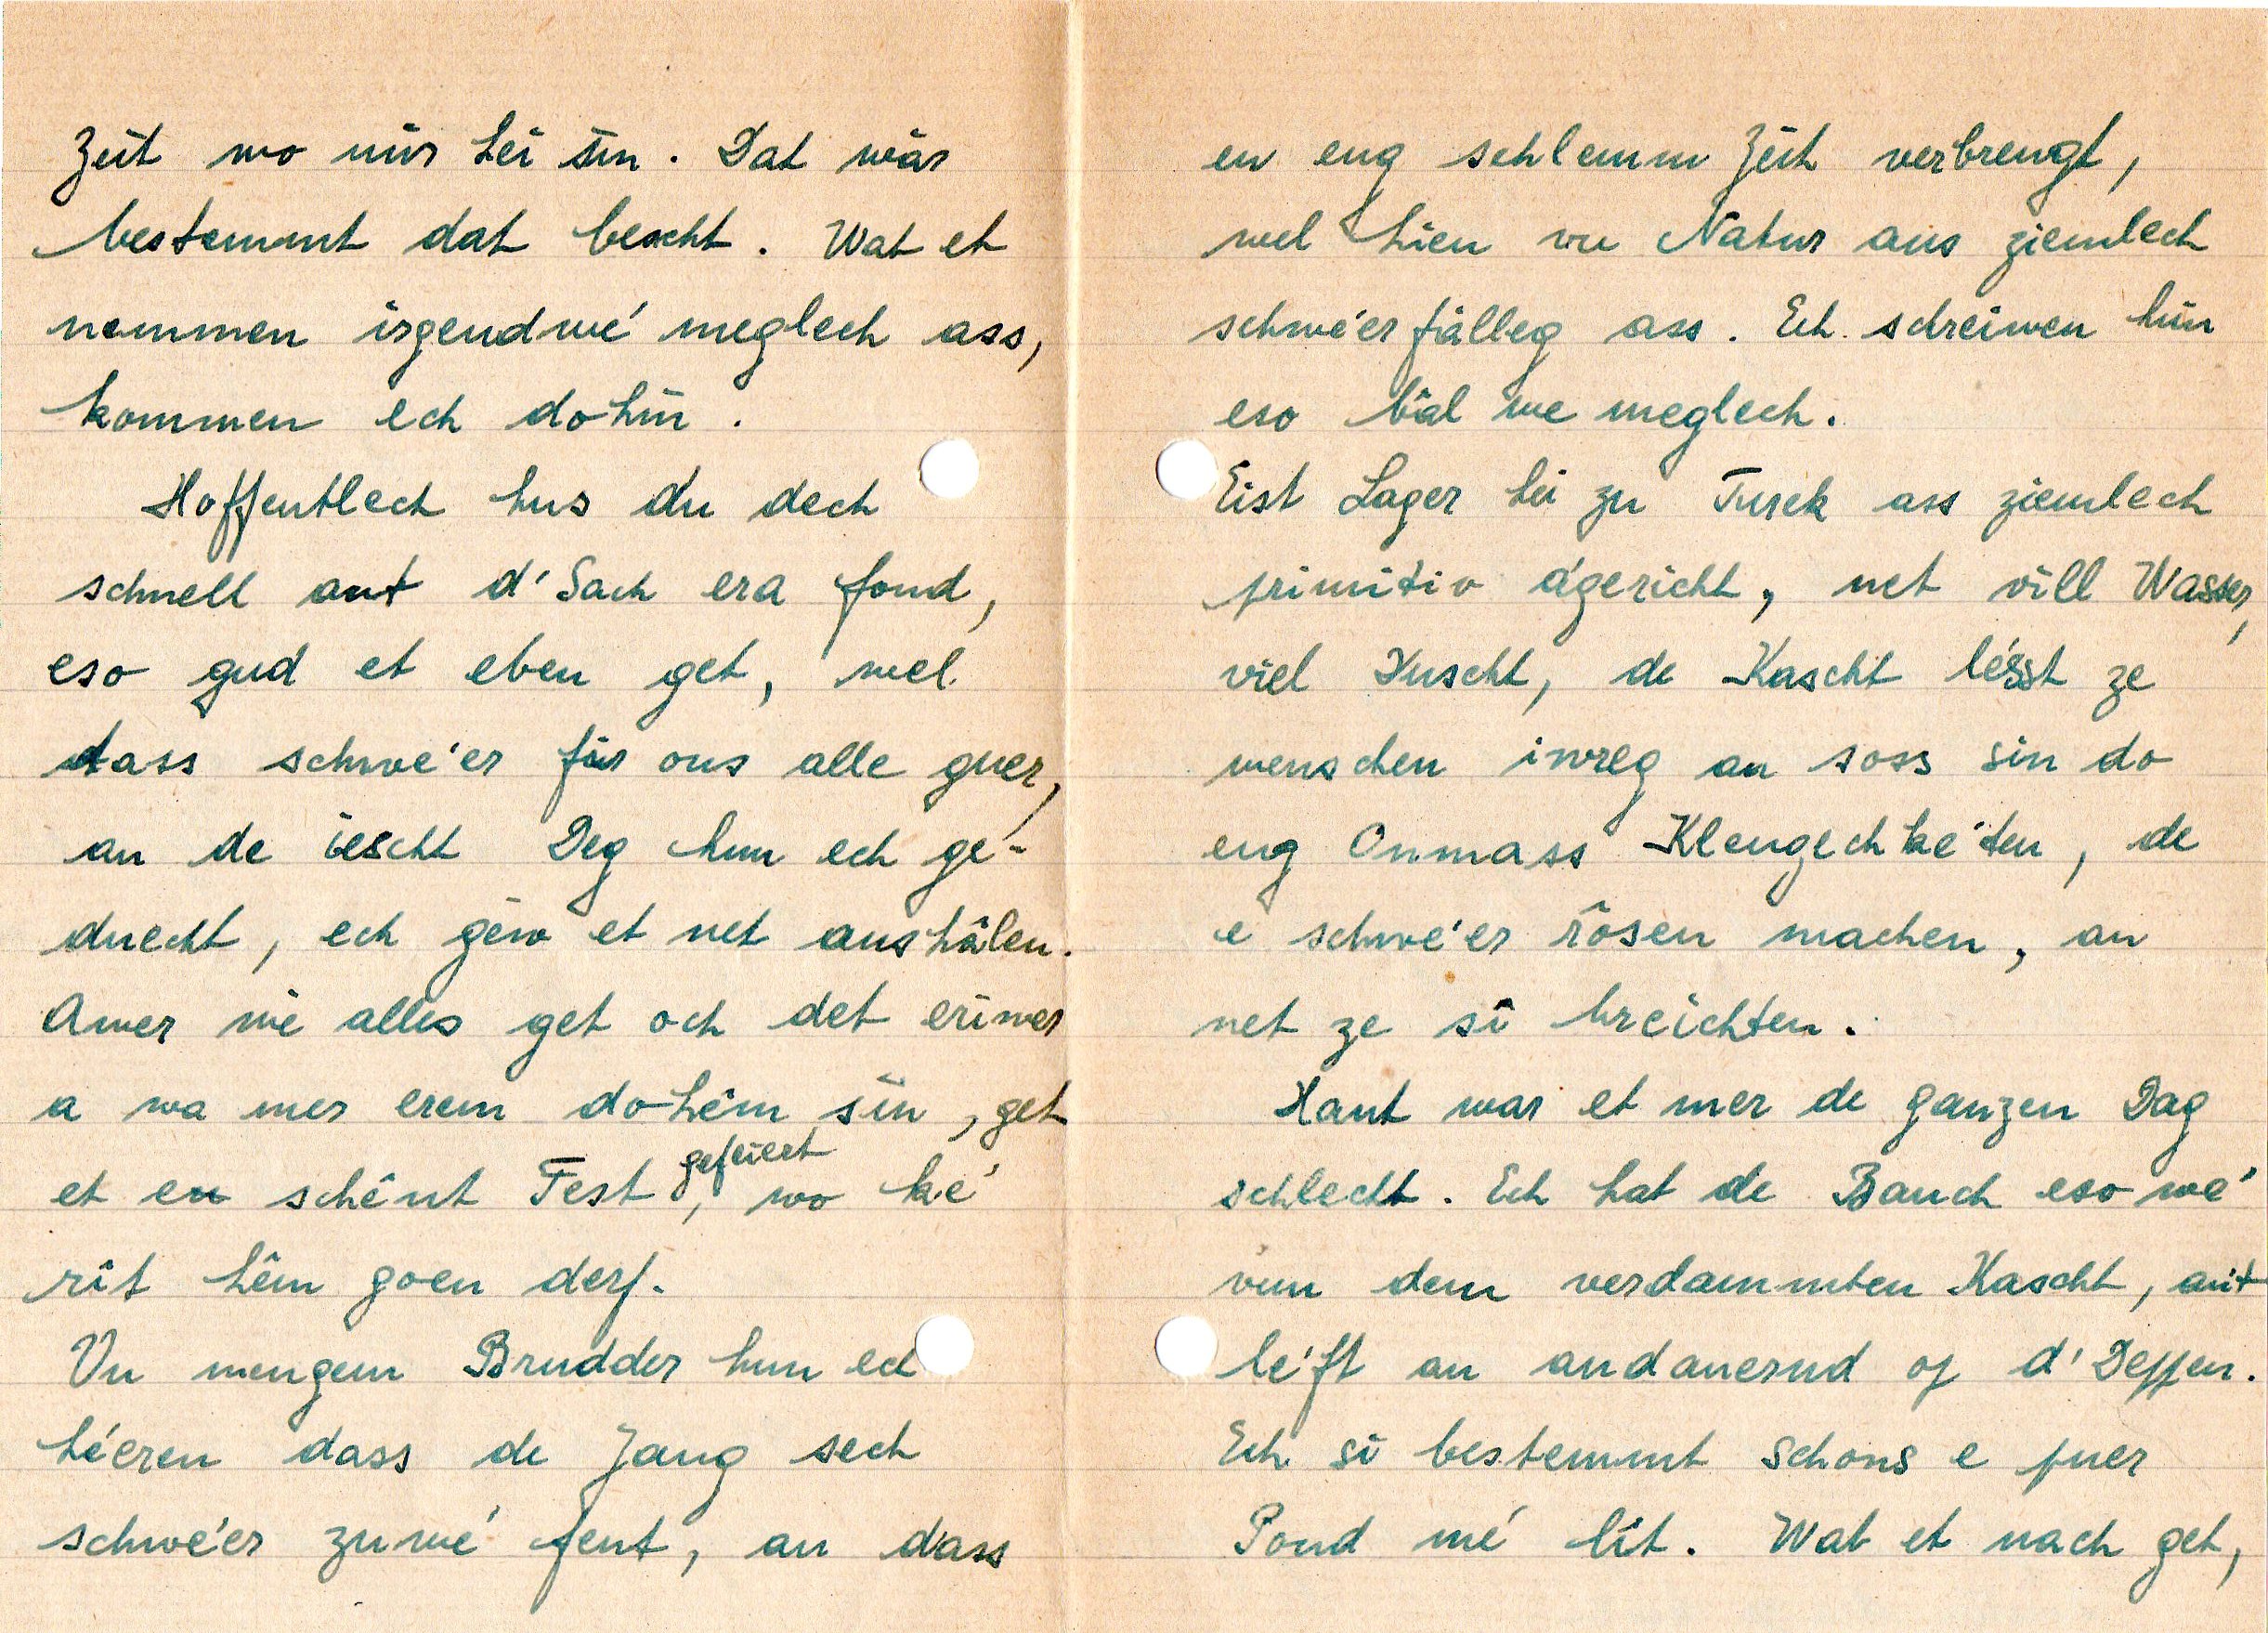 Zeit wo mir hei sin. Dat wär
bestemmt dat bescht. Wat et
nemmen irgendwé meglech ass,
kommen ech dohin.
Hoffentlech hus du dech
schnell ant d'Sach era fond,
eso gud et eben get, wel
dass schwé'er fir ons alle guer,
an de iescht Deg hun ech ge-
duecht, ech géw et net aushâlen.
Awer wé alles get och det eriwer
a wa mer erem dohém sin, get
et en schént Fest gefeiert, wo ké
rit hêm goen derf.
Vu mengem Brudder hun ech
hé'eren dass de Jang sech
schwé'er zuwé fent, an dass
en eng schlemm Zeit verbrengt,
wel hien vu Natur aus ziemlech
schwé'erfälleg ass. Ech schreiwen him
eso bâl we meglech.
Eist Lager hei zu Turek ass ziemlech
primitiv ágericht, net vill Wasser,
viel Knascht, de Kascht lésst ze
wenschen iwreg an soss sin do
eng Onmass Klengechkéten, de
e schwé'er rosen machen, an
net ze si breichten.
Haut war et mer de ganzen Dag
schlecht. Ech hat de Bauch eso wé
vun dem verdammten Kascht, ait
léift an andauernd op d'Deppen.
Ech si bestemmt schons e puer
Pond mé lit. Wat et nach get,